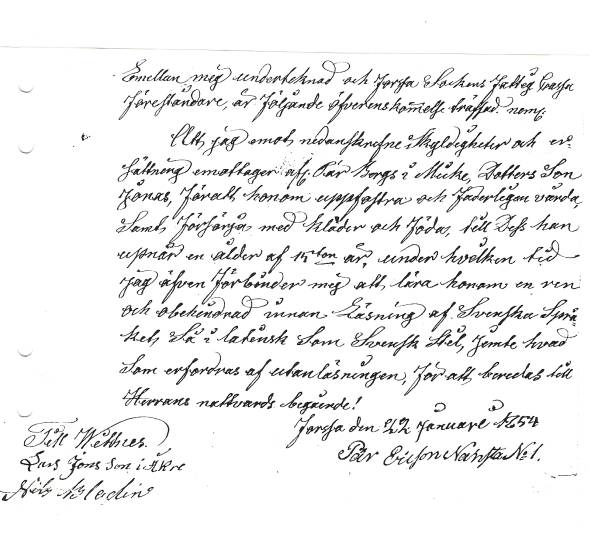 Emellan mig undertecknad och Forssa Sockens Fattig Cassa
Föreståndare, är följande öfverenskommelse träffad. neml.
Att jag emot nedanskrefne skyldigheter och er-
sättning emottager af Pär Bergs i Dotters Son
Jonas, för att honom uppfostra och faderligen vårda,
Samt förssörja med kläder och föda, till Dess han
uppnår en ålder af 15ton år, under hvilken tid
jag äfven förbinder mig att lära honom en ren
och obehindrad innan läsning af Svenska Språ-
ket, Så i latinsk som Svensk Stil, jemte hvad
som erfordras af utanläsningen, för att beredas till
Herrans nattvards begående!
Forssa den 22 Januari 1854
Pär Ericson Nansta No 1.
Till Wittnes
Lars Jons Son i Åkre
Nils Bledin